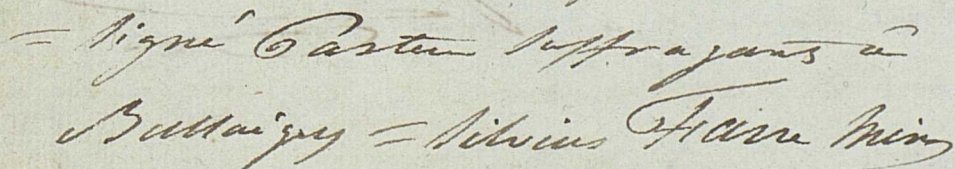 = signé Pasteur suffragant à
Ballaigues = Silvius Fiarre Min